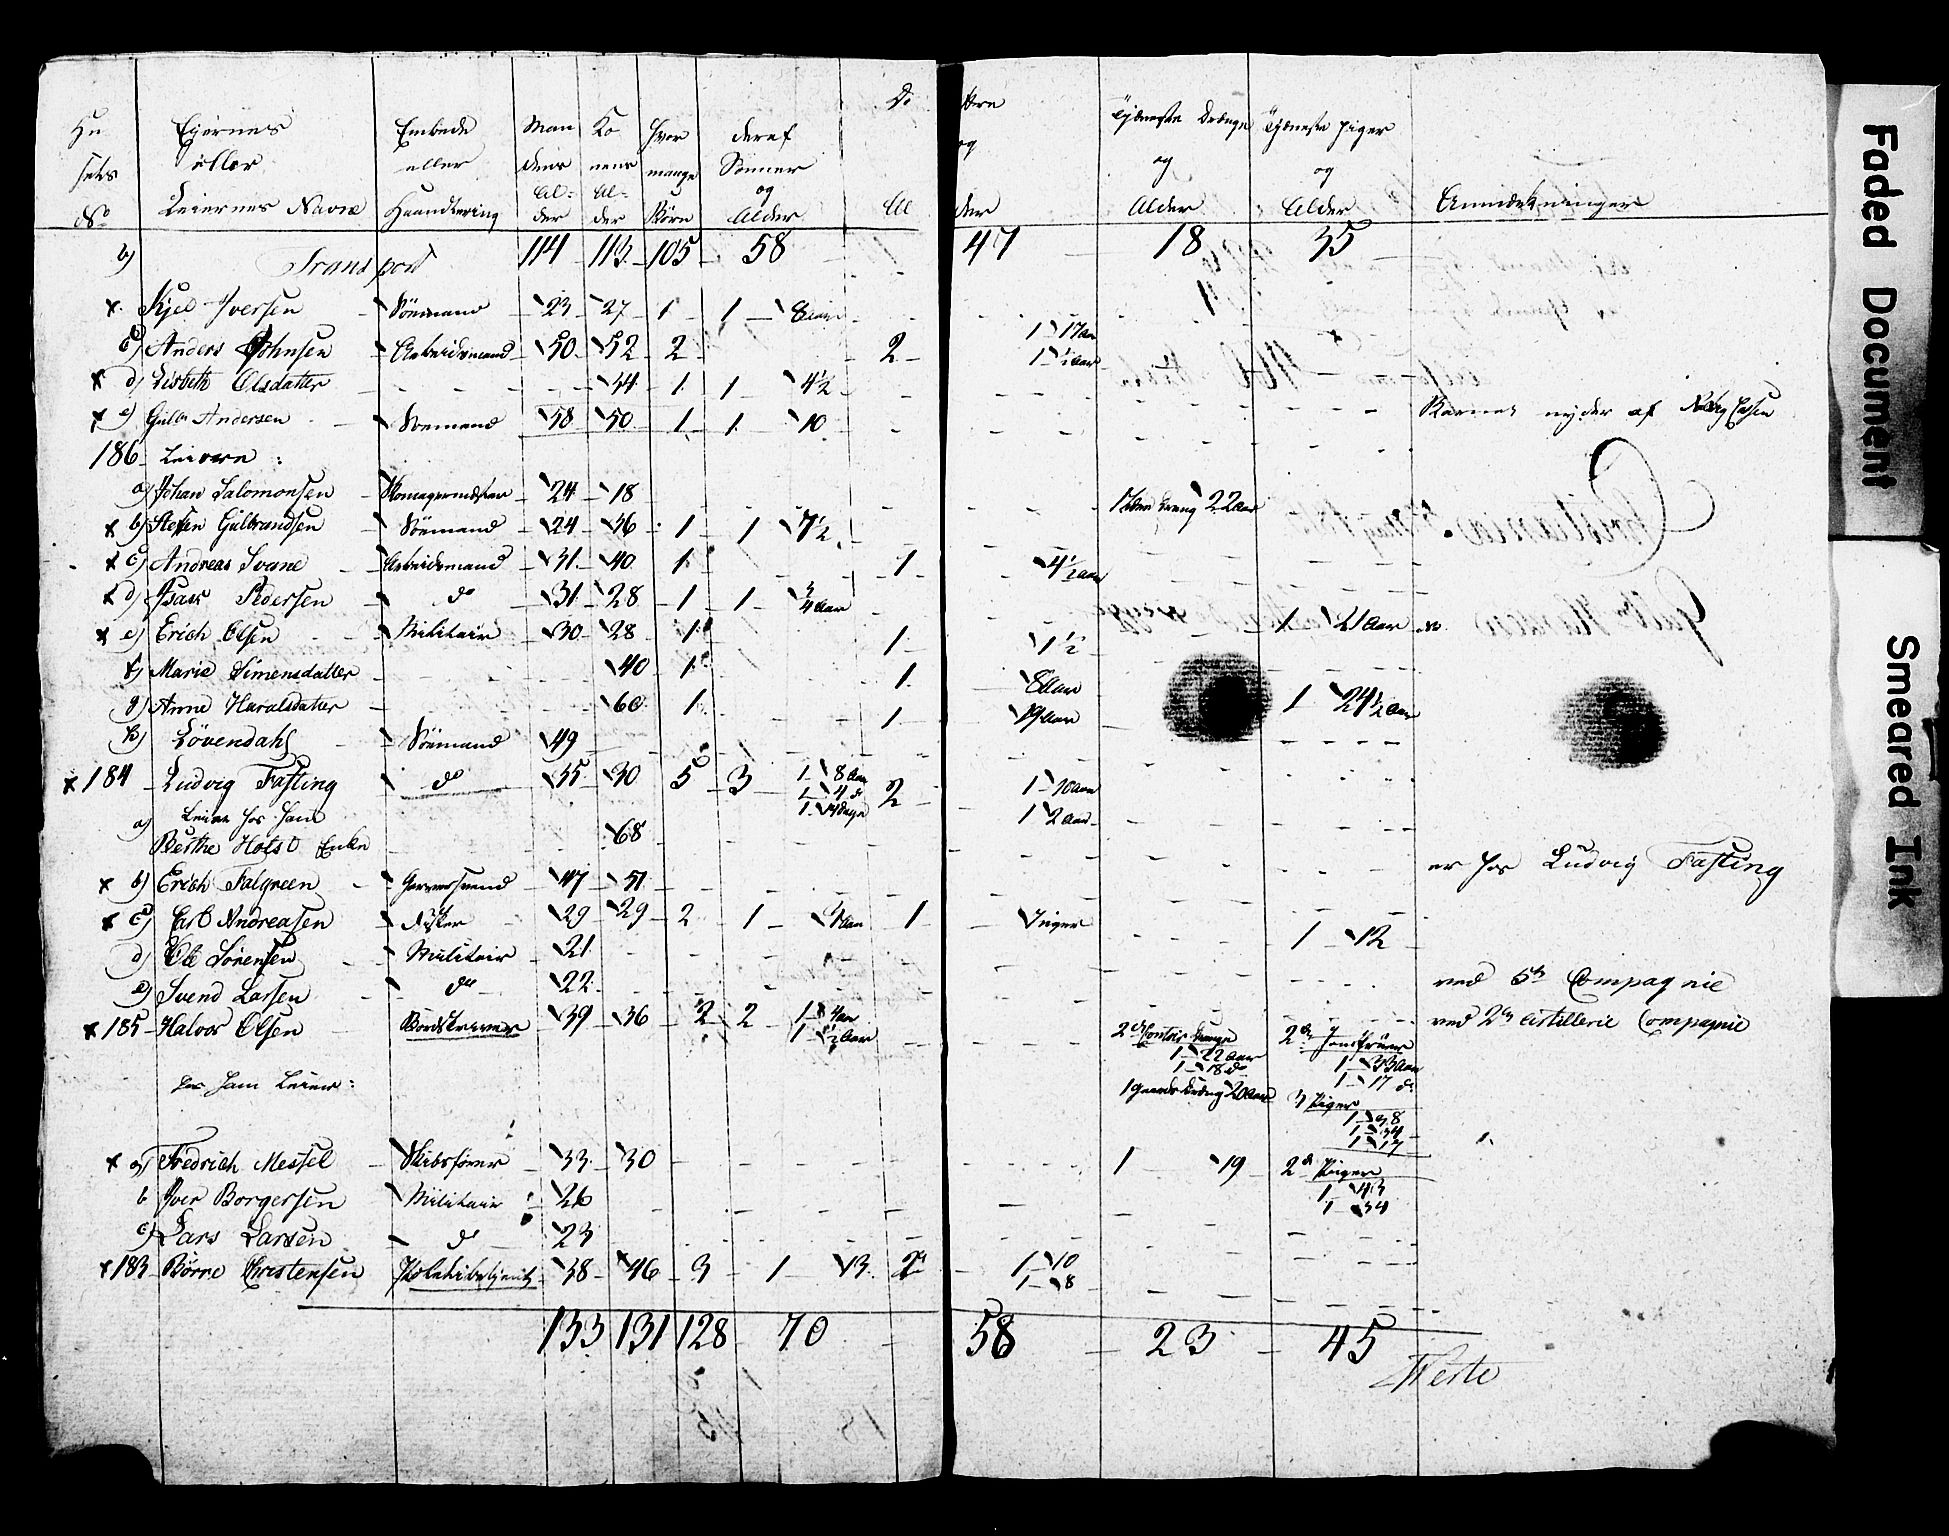 Husets No | Eiernes eller Leiernes Navne | Embede eller Haandtering | Mandens Alder | Konens Alder | Hvor mange Børn | deraf Sönner og Alder | Dottre og Alder | Tjeneste Drenge og Alder | Tjeneste piger og Alder | Anmærkninger
Transport 114 113 105 58 47 18 35
b) Kjel Iversen Söemand 23 27 1 1 8 aar
c) Anders Johnsen Arbeidsmand 50 52 2 2 1 17 aar
1 1/2 aar
d) Lisbeth Olsdatter 34 1 1 4 1/2
e) Gulbr Andersen Soemand 58 50 1 1 10 Barnet nyder af
186 Leierne:
a) Johan Salomonsen Skomagermester 24 18 1 22 aar
b) Steffen Gulbrandsen Söemand 24 36 1 1 7 1/2
c) Andreas Svane Arbeidsmand 31 40 1 1 4 1/2 aar
d) Isack Pedersen do 31 28 1 1 3/4 aar
e) Erich Olsen Militair 30 28 1 1 1 1/2 1 21 aar
f) Marie Simensdatter 40 1 1 8 aar
g) Anne Haralsdatter 60 1 1 19 aar 1 24 1/2 aar
h) Lövendahl Söemand 49
184 Ludvig Fasting do 35 30 5 3 1 8 aar 2 1 10 aar
1 4 d
1 14 dage 1 2 aar
Leier hos ham
a) Berthe Holst Enke 68 er hos Ludvig Fasting
b) Erich Falgreen Garversvend 47 51
c) Carl Andreasen Disker 29 29 2 1 4 aar 1 1 12
d) Ole Sörensen Militair 21 ved 5te Compagnie
e) Svend Larsen do 22 ved 2den Artillerie Compagnie
185 Halvor Olsen 39 36 2 2 1 aar
1 1/2 aar
2de Contoir Drenge 2de Jomfruer
1 22 aar 1 33 aar
1 18 do 1 17 d
1 Gaards dreng 20 aar 3 Piger
hos ham Leier:
1 38
1 34
1 17
a) Fredrich Messel Skibsförer 33 30 1 19 2de Piger
1 43
1 34
b Iver Borgersen Militair 26
c) Lars Larsen do 23
183 Börre Christensen 38 46 3 1 13 2 1 10
1 8
133 131 128 70 58 23 45
Verte
Faded Document
Smeared Ink